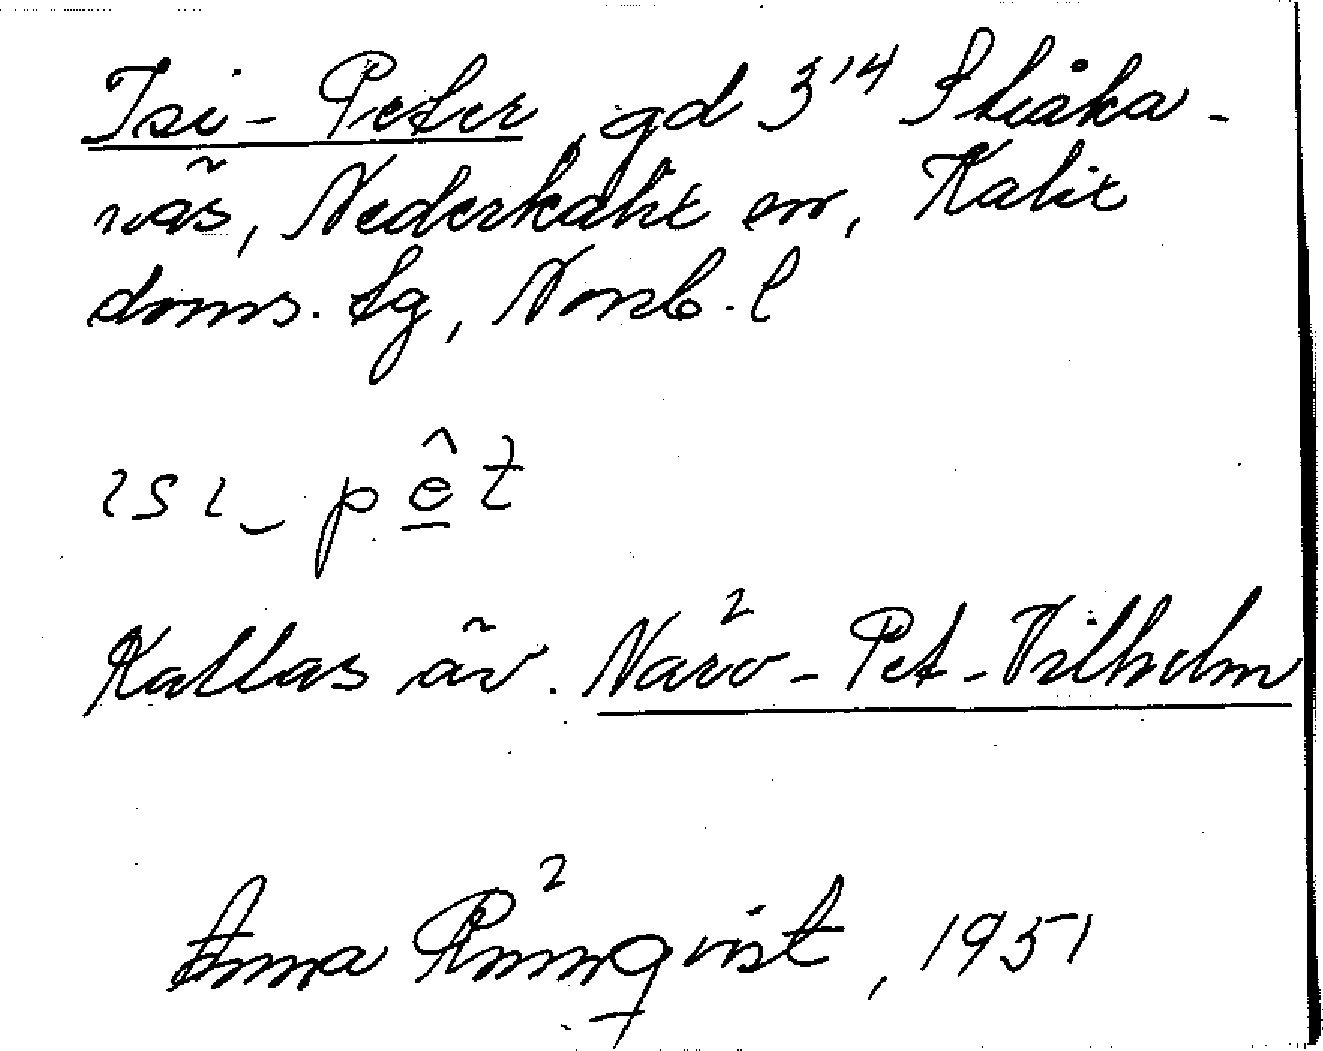 Isi-Peter, gd 3'4 Stråka-
näs, Nederkalix sn, Kalix
doms. tg, Norrb. l
ısı‿pêt
Kallas äv. När²-Pet-Vilhelm
Anna R²nnqvist, 1951